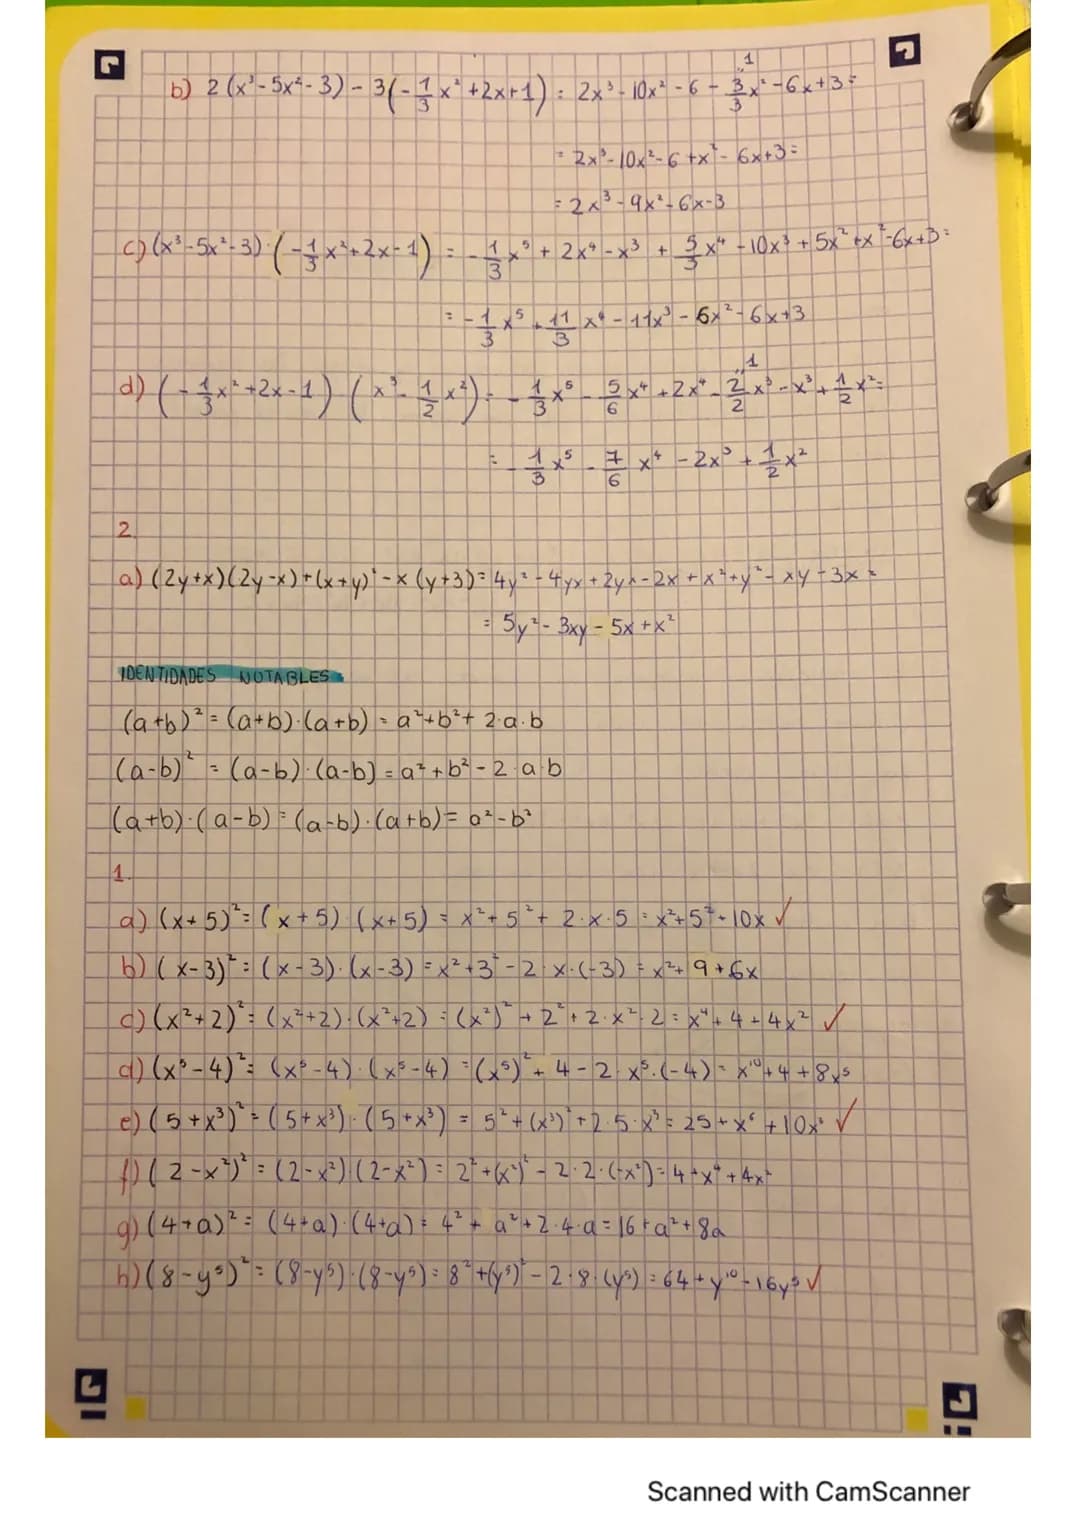 b) 2 (x³ - 5x² - 3) - 3(-1/3 x² + 2x + 1) = 2x³ - 10x² - 6 - 3/3 x² - 6x + 3 =
1
= 2x³ - 10x² - 6 + x² - 6x + 3 =
= 2x³ - 9x² - 6x - 3
c) (x³ - 5x² - 3) · (-1/3 x² + 2x - 1) = -1/3 x⁵ + 2x⁴ - x³ + 5/3 x⁴ - 10x³ + 5x² + x² - 6x + 3 =
= -1/3 x⁵ + 11/3 x⁴ - 11x³ - 6x² - 6x + 3
d) (-1/3 x² + 2x - 1) · (x³ - 1/2 x²) = -1/3 x⁵ - 5/6 x⁴ + 2x⁴ - 2/2 x³ - x³ + 1/2 x² =
1
= -1/3 x⁵ - 7/6 x⁴ - 2x³ + 1/2 x²
2.
a) (2y+x)(2y-x) + (x+y)² - x (y+3) = 4y² - 4yx + 2yx - 2x + x² + y² - xy - 3x =
= 5y² - 3xy - 5x + x²
IDENTIDADES NOTABLES
(a+b)² = (a+b)·(a+b) = a²+b²+ 2·a·b
(a-b)² = (a-b)·(a-b) = a² + b² - 2·a·b
(a+b)·(a-b) = (a-b)·(a+b) = a² - b²
1.
a) (x+5)² = (x+5)·(x+5) = x² + 5² + 2·x·5 = x² + 5² + 10x ✓
b) (x-3)² = (x-3)·(x-3) = x² + 3² - 2·x·(-3) = x² + 9 + 6x
c) (x²+2)² = (x²+2)·(x²+2) = (x²)² + 2² + 2·x²·2 = x⁴ + 4 + 4x² ✓
d) (x⁵-4)² = (x⁵-4)·(x⁵-4) = (x⁵)² + 4 - 2·x⁵·(-4) = x¹⁰ + 4 + 8x⁵
e) (5+x³)² = (5+x³)·(5+x³) = 5² + (x³)² + 2·5·x³ = 25 + x⁶ + 10x³ ✓
f) (2-x²)² = (2-x²)·(2-x²) = 2² + (x²)² - 2·2·(-x²) = 4 + x⁴ + 4x²
g) (4+a)² = (4+a)·(4+a) = 4² + a² + 2·4·a = 16 + a² + 8a
h) (8-y⁵)² = (8-y⁵)·(8-y⁵) = 8² + (y⁵)² - 2·8·(y⁵) = 64 + y¹⁰ - 16y⁵ ✓
Scanned with CamScanner